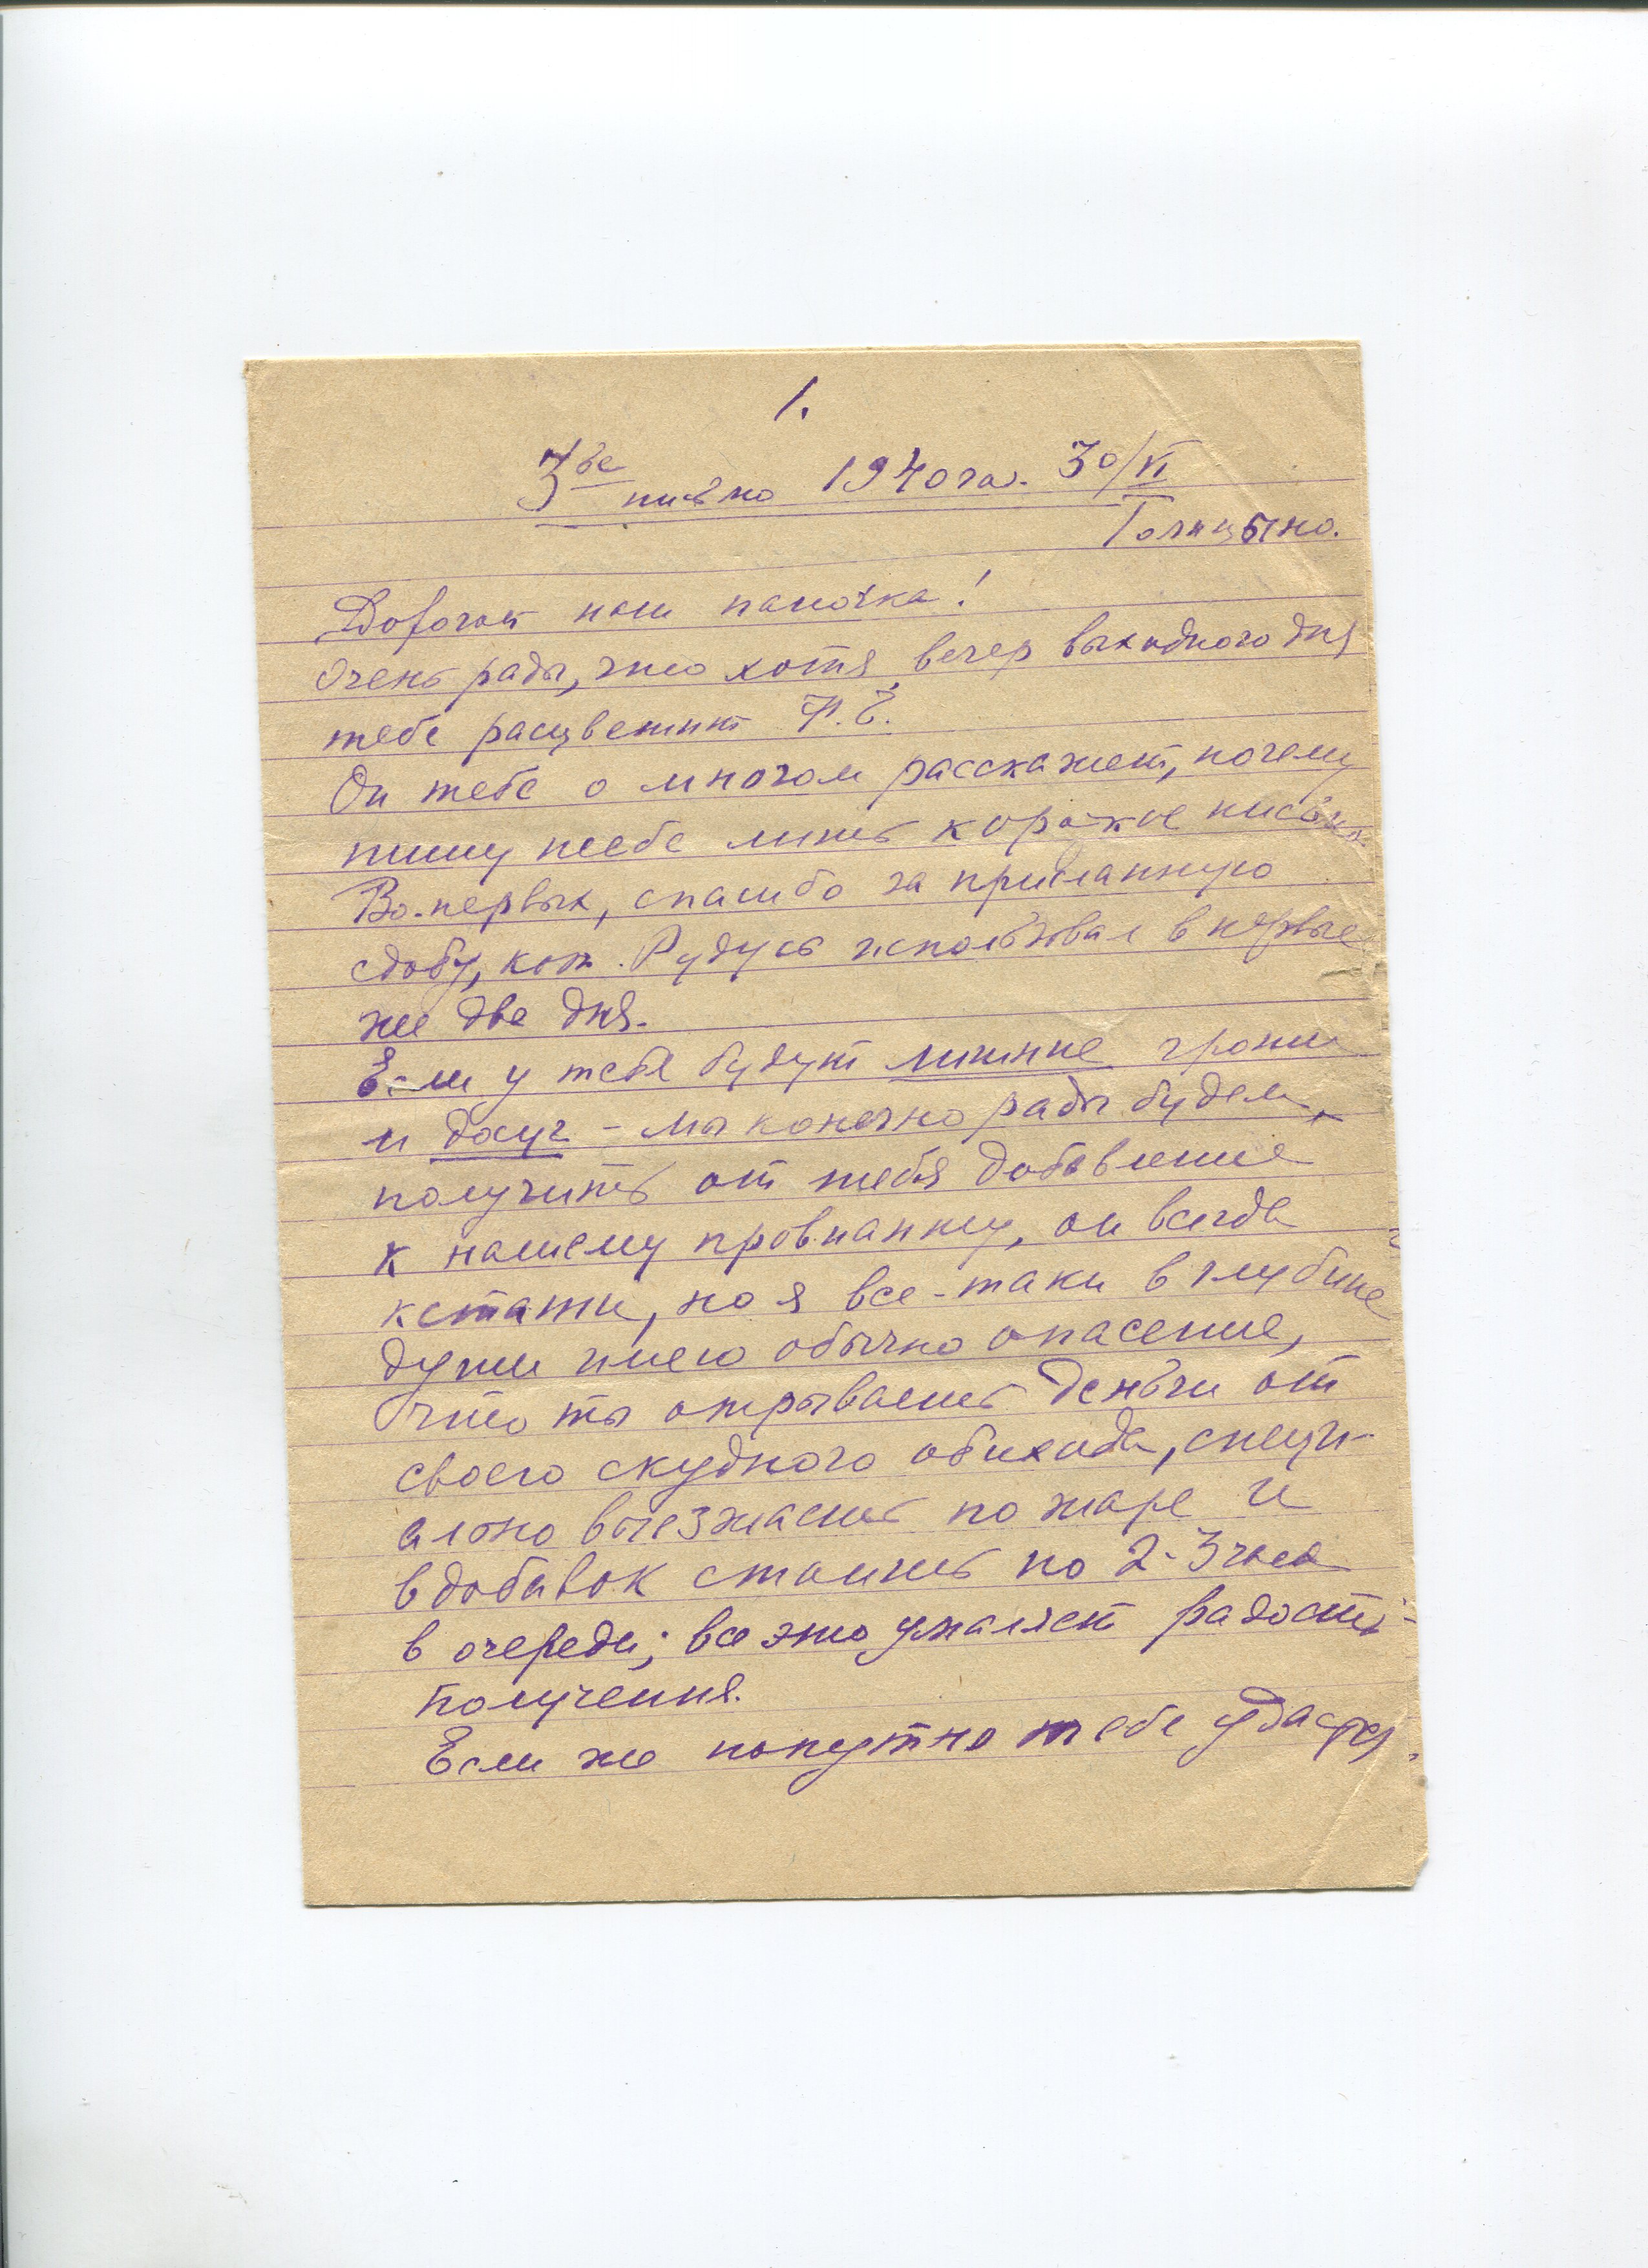 1.
3ье письмо 1940 га. 30/VI
Голицыно.
Дорогой наш папочка!
Очень рады, что хотя вечер выходного дня
тебе расцветит Ф.Е.
Он тебе о многом расскажет, почему
пишу тебе лишь короткое письмо
Во-первых, спасибо за присланную
сдобу, кот. Рудусь использовал в первые
же две дня.
Если у тебя будут лишние гроши
и досуг - мы конечно рады будем
получить от тебя добавление
к нашему провианту, он всегда
кстати, но я все-таки в глубине
души имею обычно опасение,
что ты отрываешь деньги от
своего скудного обихода, специ-
ально выезжаешь по жаре и
вдобавок стоишь по 2-3 часа
в очереди; все это умаляет радость
получения.
Если же попутно тебе удастся